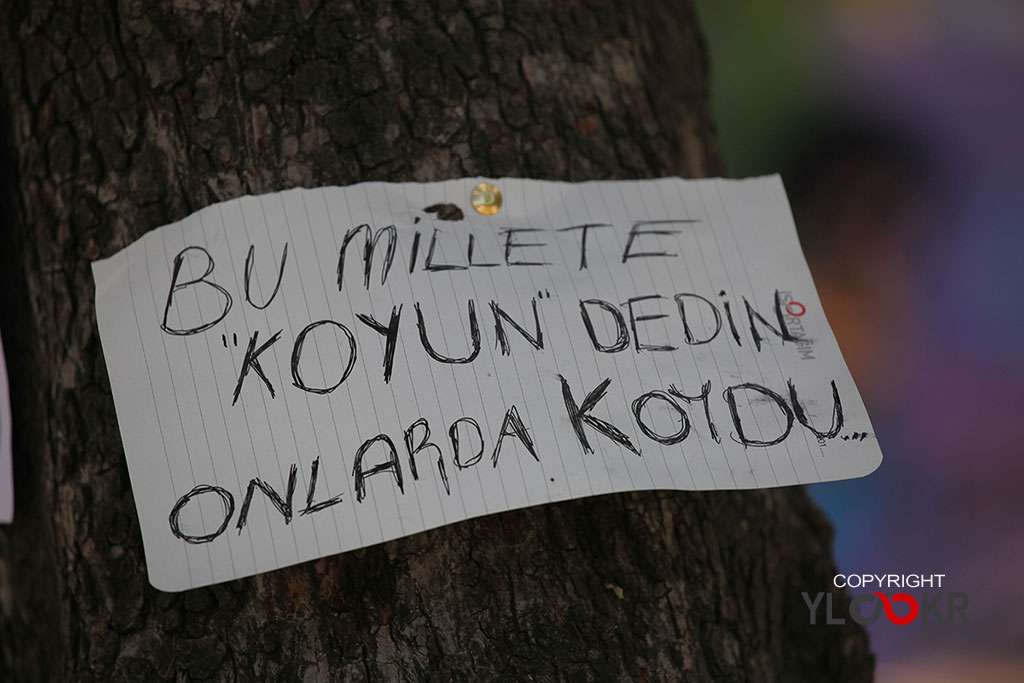 BU MİLLETE
"KOYUN" DEDİN
ONLARDA KOYDU...
COPYRIGHT
YLOOKR